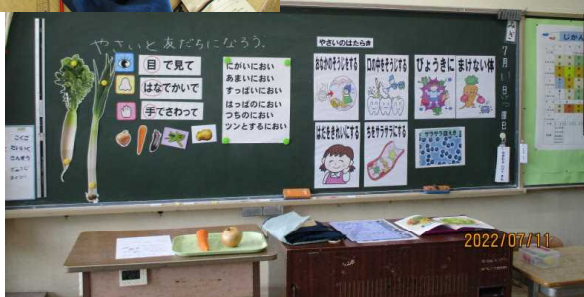 やさいと友だちになろう。
目で見て
はなでかいで
手でさわって
にがいにおい
あまいにおい
すっぱいにおい
はっぱのにおい
つちのにおい
ツンとするにおい
やさいのはたらき
おなかのそうじをする
口の中をそうじする
びょうきに まけない体
はだをきれいにする
ちをサラサラにする
7月11日
曜日
じかん
2022/07/11